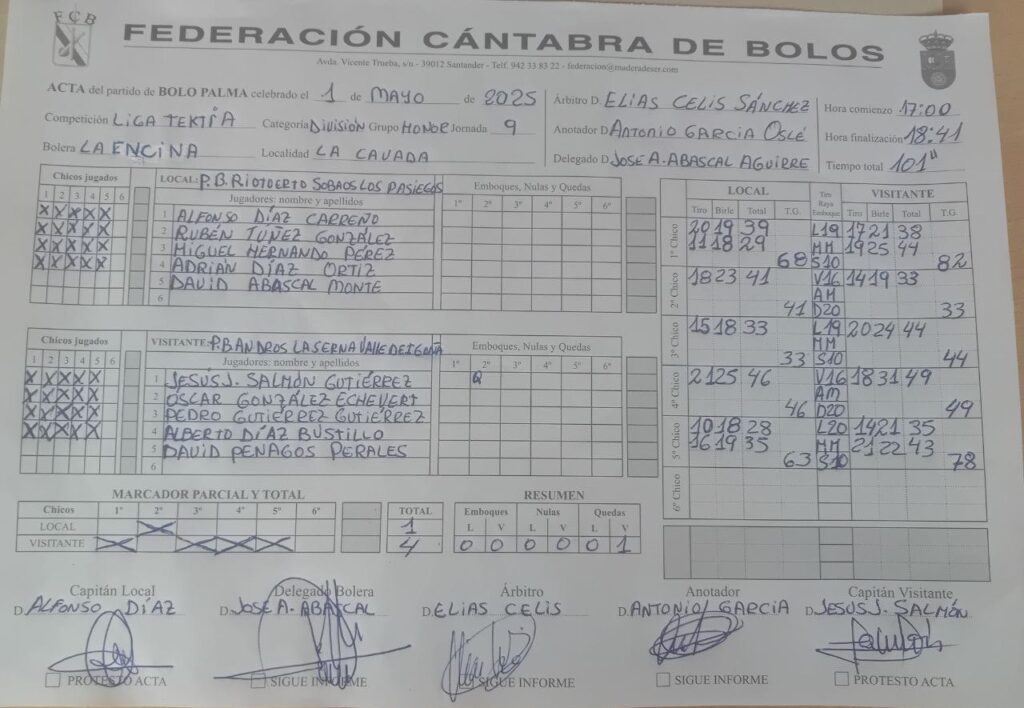 FCB
FEDERACIÓN CÁNTABRA DE BOLOS
Avda. Vicente Trueba, s/n - 39012 Santander - Telf. 942 33 83 22 - federacion@maderadeser.com
ACTA del partido de BOLO PALMA celebrado el 1 de MAYO de 2025
Competición LIGA TEKTIA Categoría DIVISIÓN Grupo HONOR Jornada 9
Bolera LA ENCINA Localidad LA CAVADA
Árbitro D. ELIAS CELIS SÁNCHEZ
Anotador D ANTONIO GARCIA OSLÉ
Delegado D JOSE A. ABASCAL AGUIRRE
Hora comienzo 17:00
Hora finalización 18:41
Tiempo total 101"
Chicos jugados
1 2 3 4 5 6
X X X X X
X X X X X
X X X X X
X X X X X
LOCAL: P.B. RIOTUERTO SOBAOS LOS PASIEGOS
Jugadores: nombre y apellidos
Emboques, Nulas y Quedas
1º 2º 3º 4º 5º 6º
1 ALFONSO DÍAZ CARREÑO
2 RUBÉN TUÑEZ GONZÁLEZ
3 MIGUEL HERNANDO PÉREZ
4 ADRIÁN DÍAZ ORTIZ
5 DAVID ABASCAL MONTE
6
Chicos jugados
1 2 3 4 5 6
X X X X X
X X X X X
X X X X X
X X X X X
VISITANTE: P.B ANDROS LA SERNA VALLE DE IGUÑA
Jugadores: nombre y apellidos
Emboques, Nulas y Quedas
1º 2º 3º 4º 5º 6º
1 JESÚS J. SALMÓN GUTIÉRREZ Q
2 OSCAR GONZÁLEZ ECHEVERT
3 PEDRO GUTIÉRREZ GUTIÉRREZ
4 ALBERTO DÍAZ BUSTILLO
5 DAVID PENAGOS PERALES
6
LOCAL Tiro Raya Emboque VISITANTE
Tiro Birle Total T.G. Tiro Birle Total T.G.
1º Chico
20 19 39 L19 17 21 38
11 18 29 MM 19 25 44
68 S10 82
2º Chico
18 23 41 V16 14 19 33
AM
41 D20 33
3º Chico
15 18 33 L19 20 24 44
MM
33 S10 44
4º Chico
21 25 46 V16 18 31 49
AM
46 D20 49
5º Chico
10 18 28 L20 14 21 35
16 19 35 MM 21 22 43
63 S10 78
6º Chico
MARCADOR PARCIAL Y TOTAL
Chicos 1º 2º 3º 4º 5º 6º TOTAL
LOCAL X 1
VISITANTE X X X X 4
RESUMEN
Emboques Nulas Quedas
L V L V L V
0 0 0 0 0 1
Capitán Local Delegado Bolera Árbitro Anotador Capitán Visitante
D. ALFONSO DÍAZ D. JOSE A. ABASCAL D. ELIAS CELIS D. ANTONIO GARCIA D. JESUS J. SALMÓN
PROTESTO ACTA SIGUE INFORME SIGUE INFORME SIGUE INFORME PROTESTO ACTA